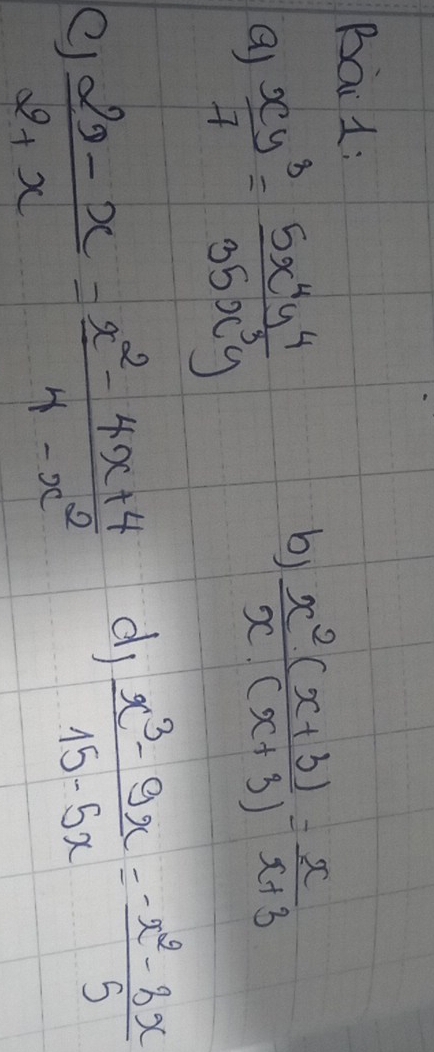 Bài 1:
a) \frac{xy^3}{7} = \frac{5x^4y^4}{35x^3y}
b) \frac{x^2.(x+3)}{x.(x+3)} = \frac{x}{x+3}
c) \frac{2-x}{2+x} = \frac{x^2-4x+4}{4-x^2}
d) \frac{x^3-9x}{15-5x} = \frac{-x^2-3x}{5}